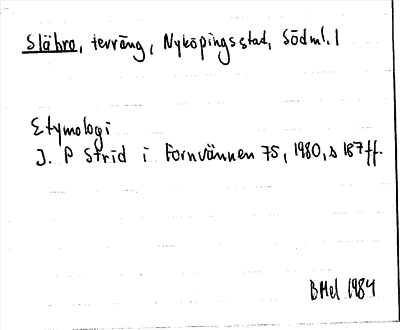 Släbro, terräng, Nyköpings stad, Södml. l
Etymologi
J. P Strid i Fornvännen 75, 1980, s 187 ff.
BHel 1984